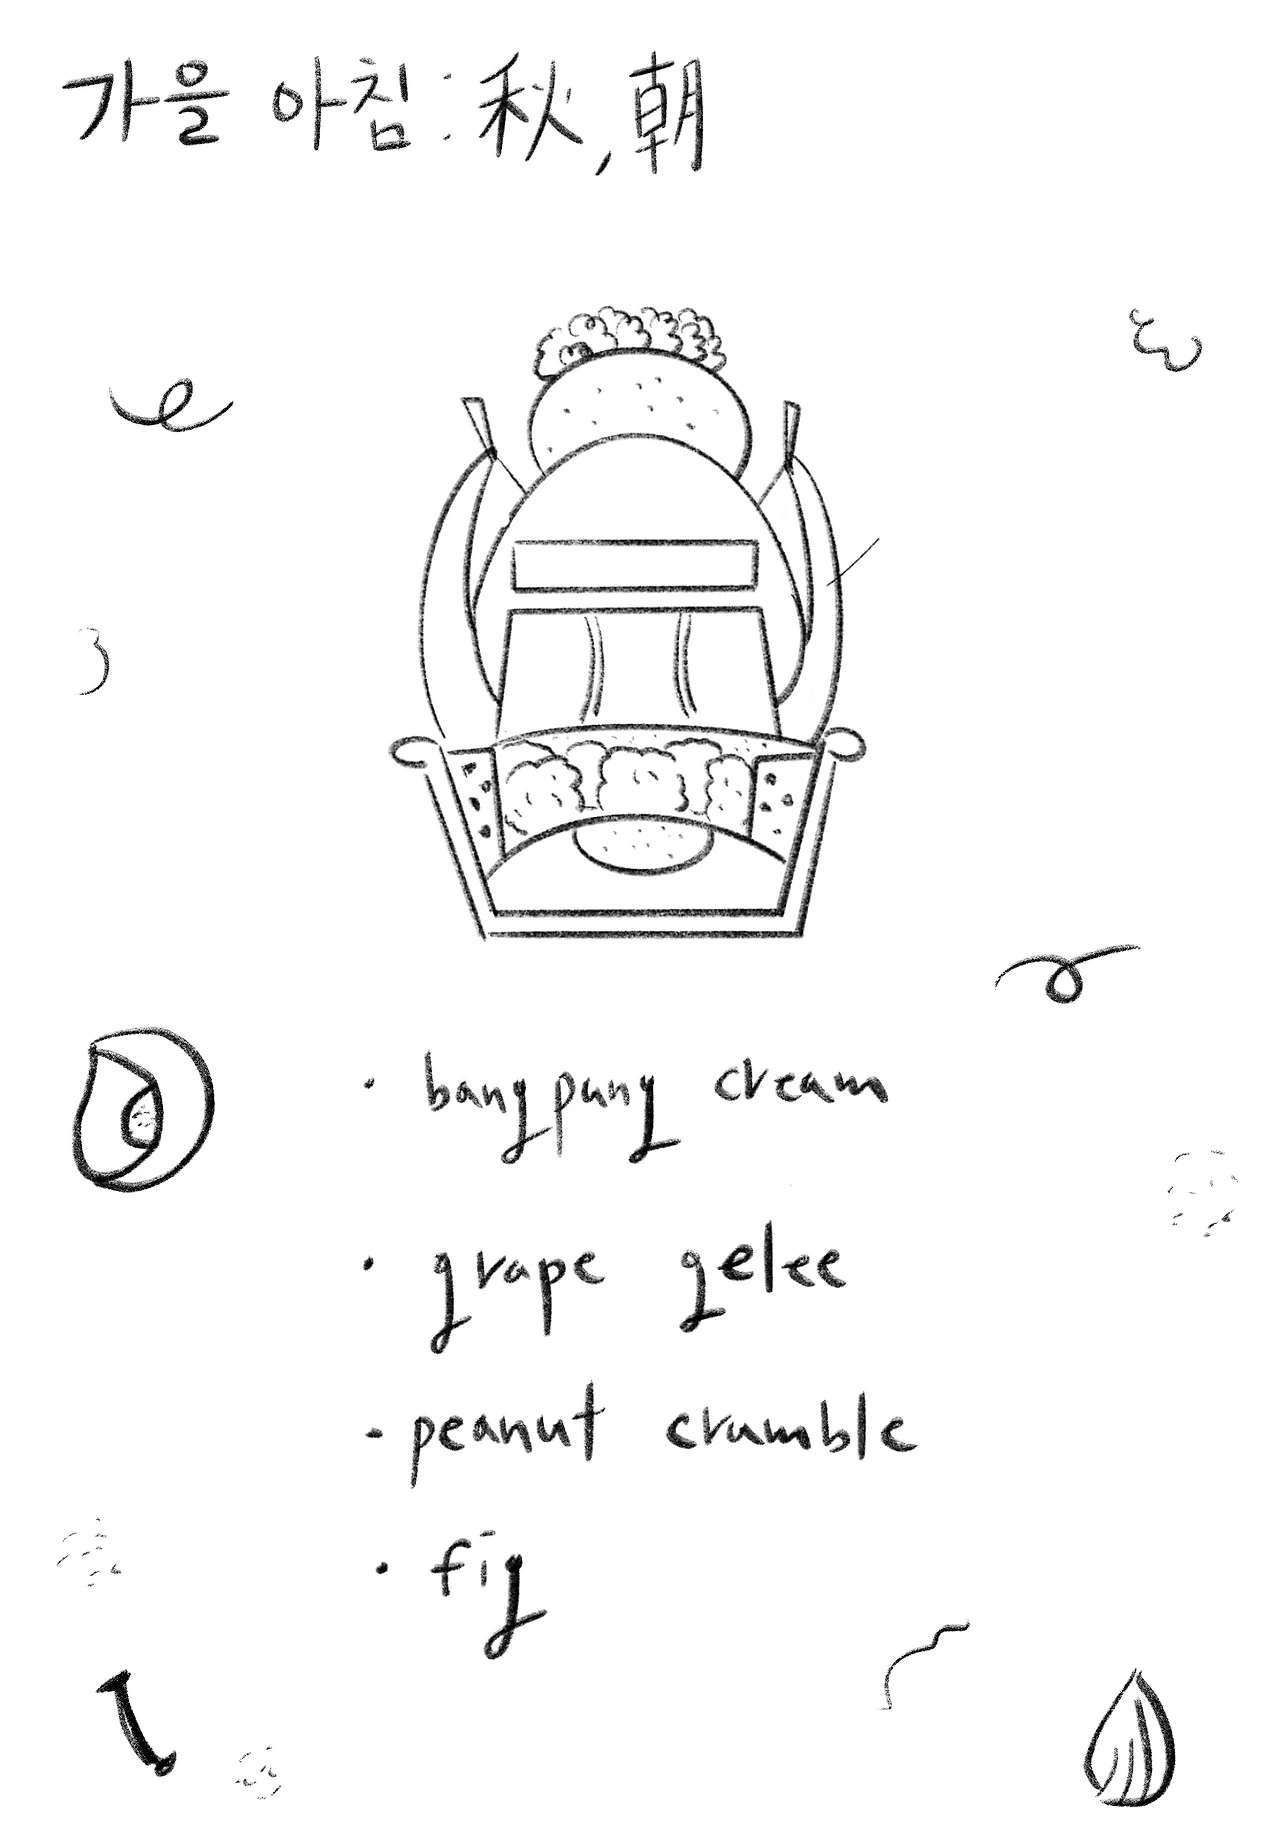 가을 아침 : 秋, 朝
· bangpung cream
· grape gelee
· peanut crumble
· fig